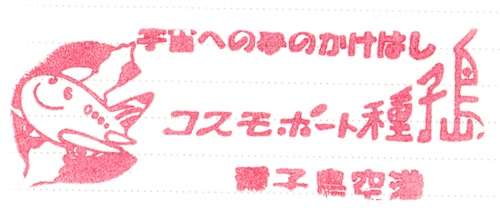 宇宙への夢のかけはし
コスモ・ポート種子島
種子島空港